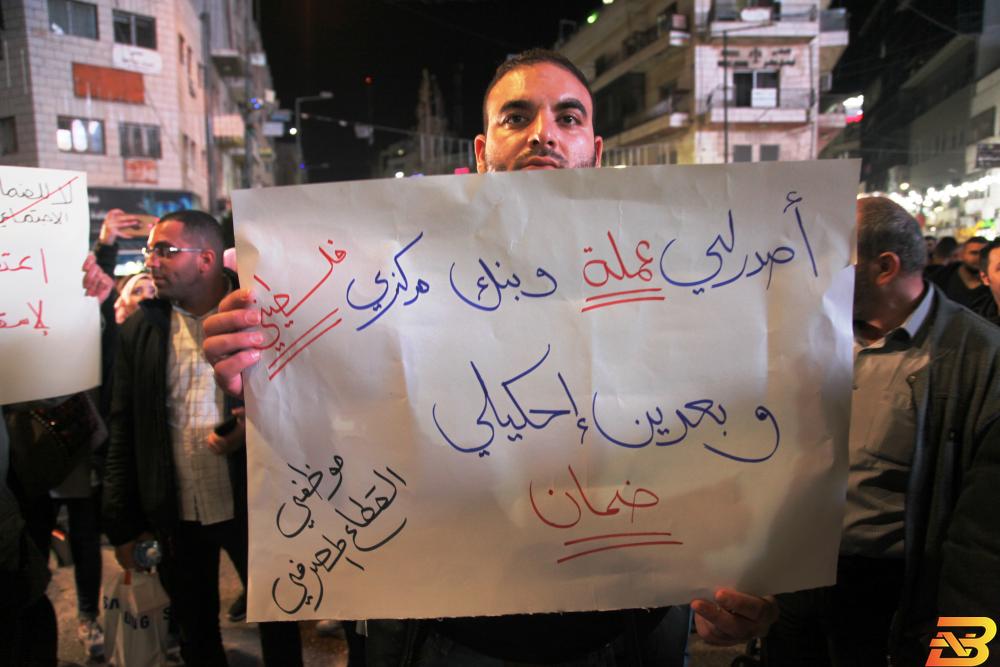 أصدرلي عملة وبنك مركزي فلسطيني
وبعدين إحكيلي
ضمان
موظفي
القطاع المصرفي
لا للضما
الاجتماعي
SA
NG